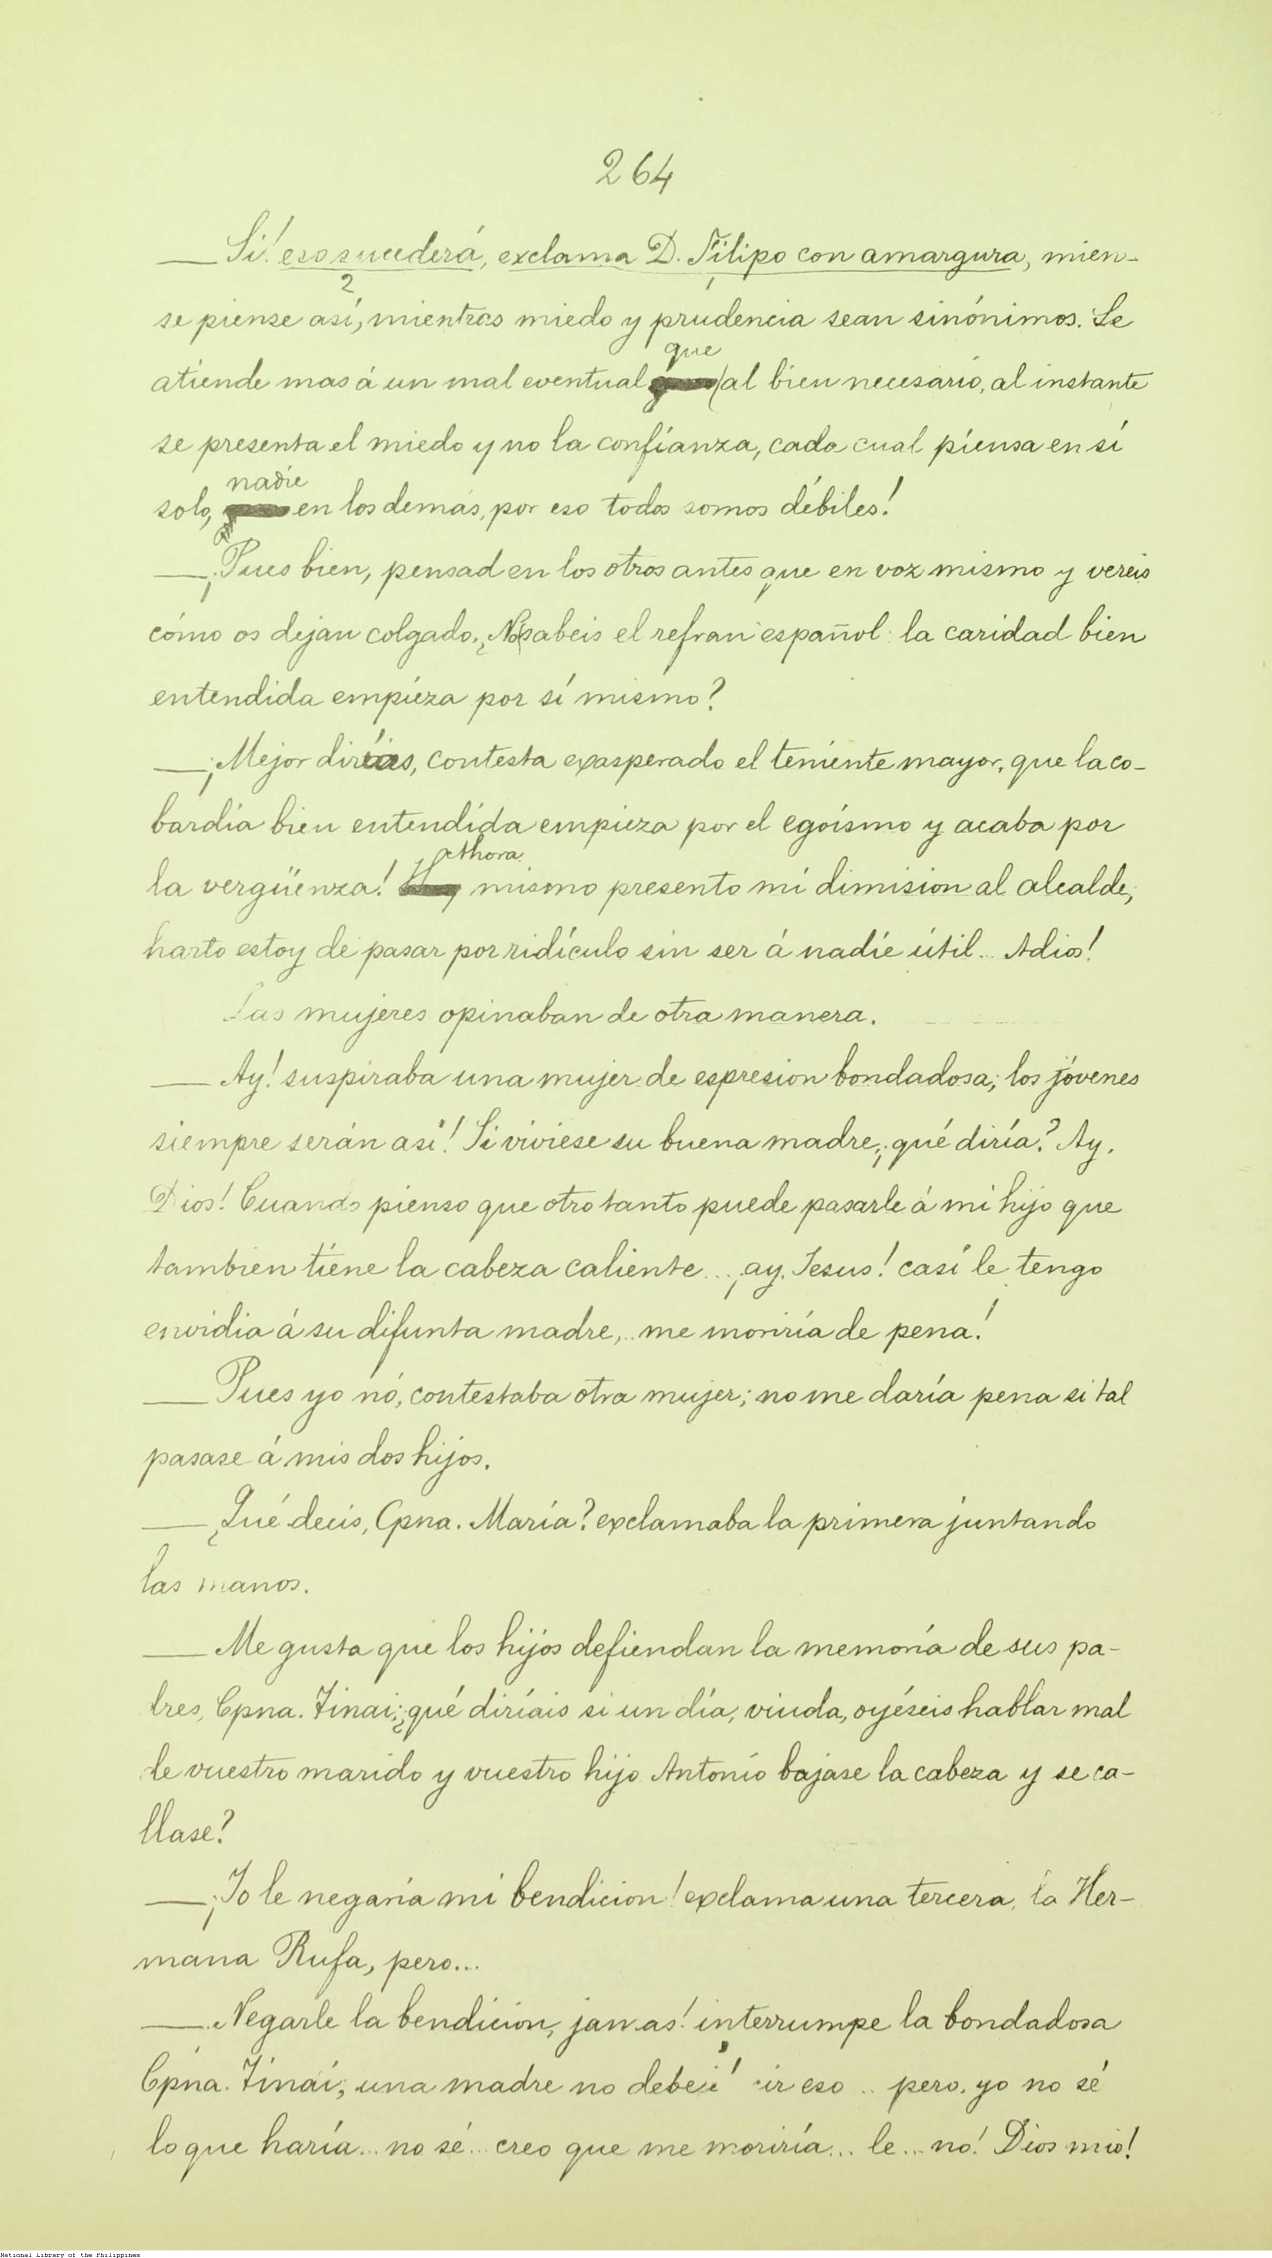 264
— Si! eso sucederá, exclama D. Filipo con amargura, mien-
2
se piense así, mientras miedo y prudencia sean sinónimos. Se
que
atiende mas á un mal eventual al bien necesario, al instante
se presenta el miedo y no la confianza, cada cual piensa en sí
nadie
solo, en los demás, por eso todos somos débiles!
— ¡Pues bien, pensad en los otros antes que en voz mismo y vereis
cómo os dejan colgado. ¿No sabeis el refran español: la caridad bien
entendida empieza por sí mismo?
— ¡Mejor diríais, contesta exasperado el teniente mayor, que la co-
bardía bien entendida empieza por el egoísmo y acaba por
Ahora
la vergüenza! mismo presento mi dimision al alcalde;
harto estoy de pasar por ridículo sin ser á nadie útil... Adios!
Las mujeres opinaban de otra manera.
— Ay! suspiraba una mujer de espresion bondadosa; los jóvenes
siempre serán así! Si viviese su buena madre, ¿qué diría? Ay,
Dios! Cuando pienso que otro tanto puede pasarle á mi hijo que
tambien tiene la cabeza caliente... ¡ay, Jesus! casi le tengo
envidia á su difunta madre,.. me moriría de pena!
— Pues yo nó, contestaba otra mujer; no me daría pena si tal
pasase á mis dos hijos.
— ¿Qué decis, Cpna. María? exclamaba la primera juntando
las manos.
— Me gusta que los hijos defiendan la memoria de sus pa-
dres, Cpna. Tinai; ¿qué diríais si un día, viuda, oyéseis hablar mal
de vuestro marido y vuestro hijo Antonio bajase la cabeza y se ca-
llase?
— ¡Yo le negaría mi bendicion! exclama una tercera, la Her-
mana Rufa, pero...
— Negarle la bendicion, jamas! interrumpe la bondadosa
Cpna. Tinai; una madre no debe eso... pero, yo no sé
lo que haría... no sé... creo que me moriría... le... no! Dios mio!
National Library of the Philippines